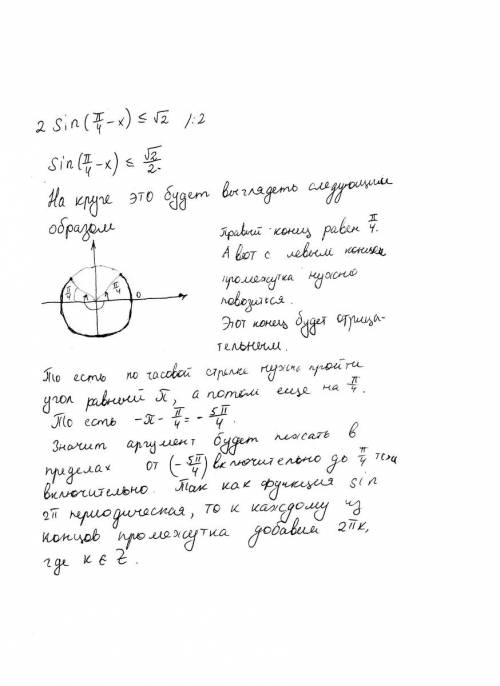 2 Sin(π/4 - x) ≤ √2 /:2
Sin(π/4 - x) ≤ √2/2.
На круге это будет выглядеть следующим
образом
правый конец равен π/4.
А вот с левым концом
промежутка нужно
повозится.
Этот конец будет отрица-
тельным.
π/4 π/4 0
То есть по часовой стрелке нужно пройти
угол равный π, а потом еще на π/4.
То есть -π - π/4 = - 5π/4.
Значит аргумент будет лежать в
пределах от (-5π/4) включительно до π/4 тоже
включительно. Так как функция sin
2π периодическая, то к каждому из
концов промежутка добавим 2πk,
где k ∈ Z.